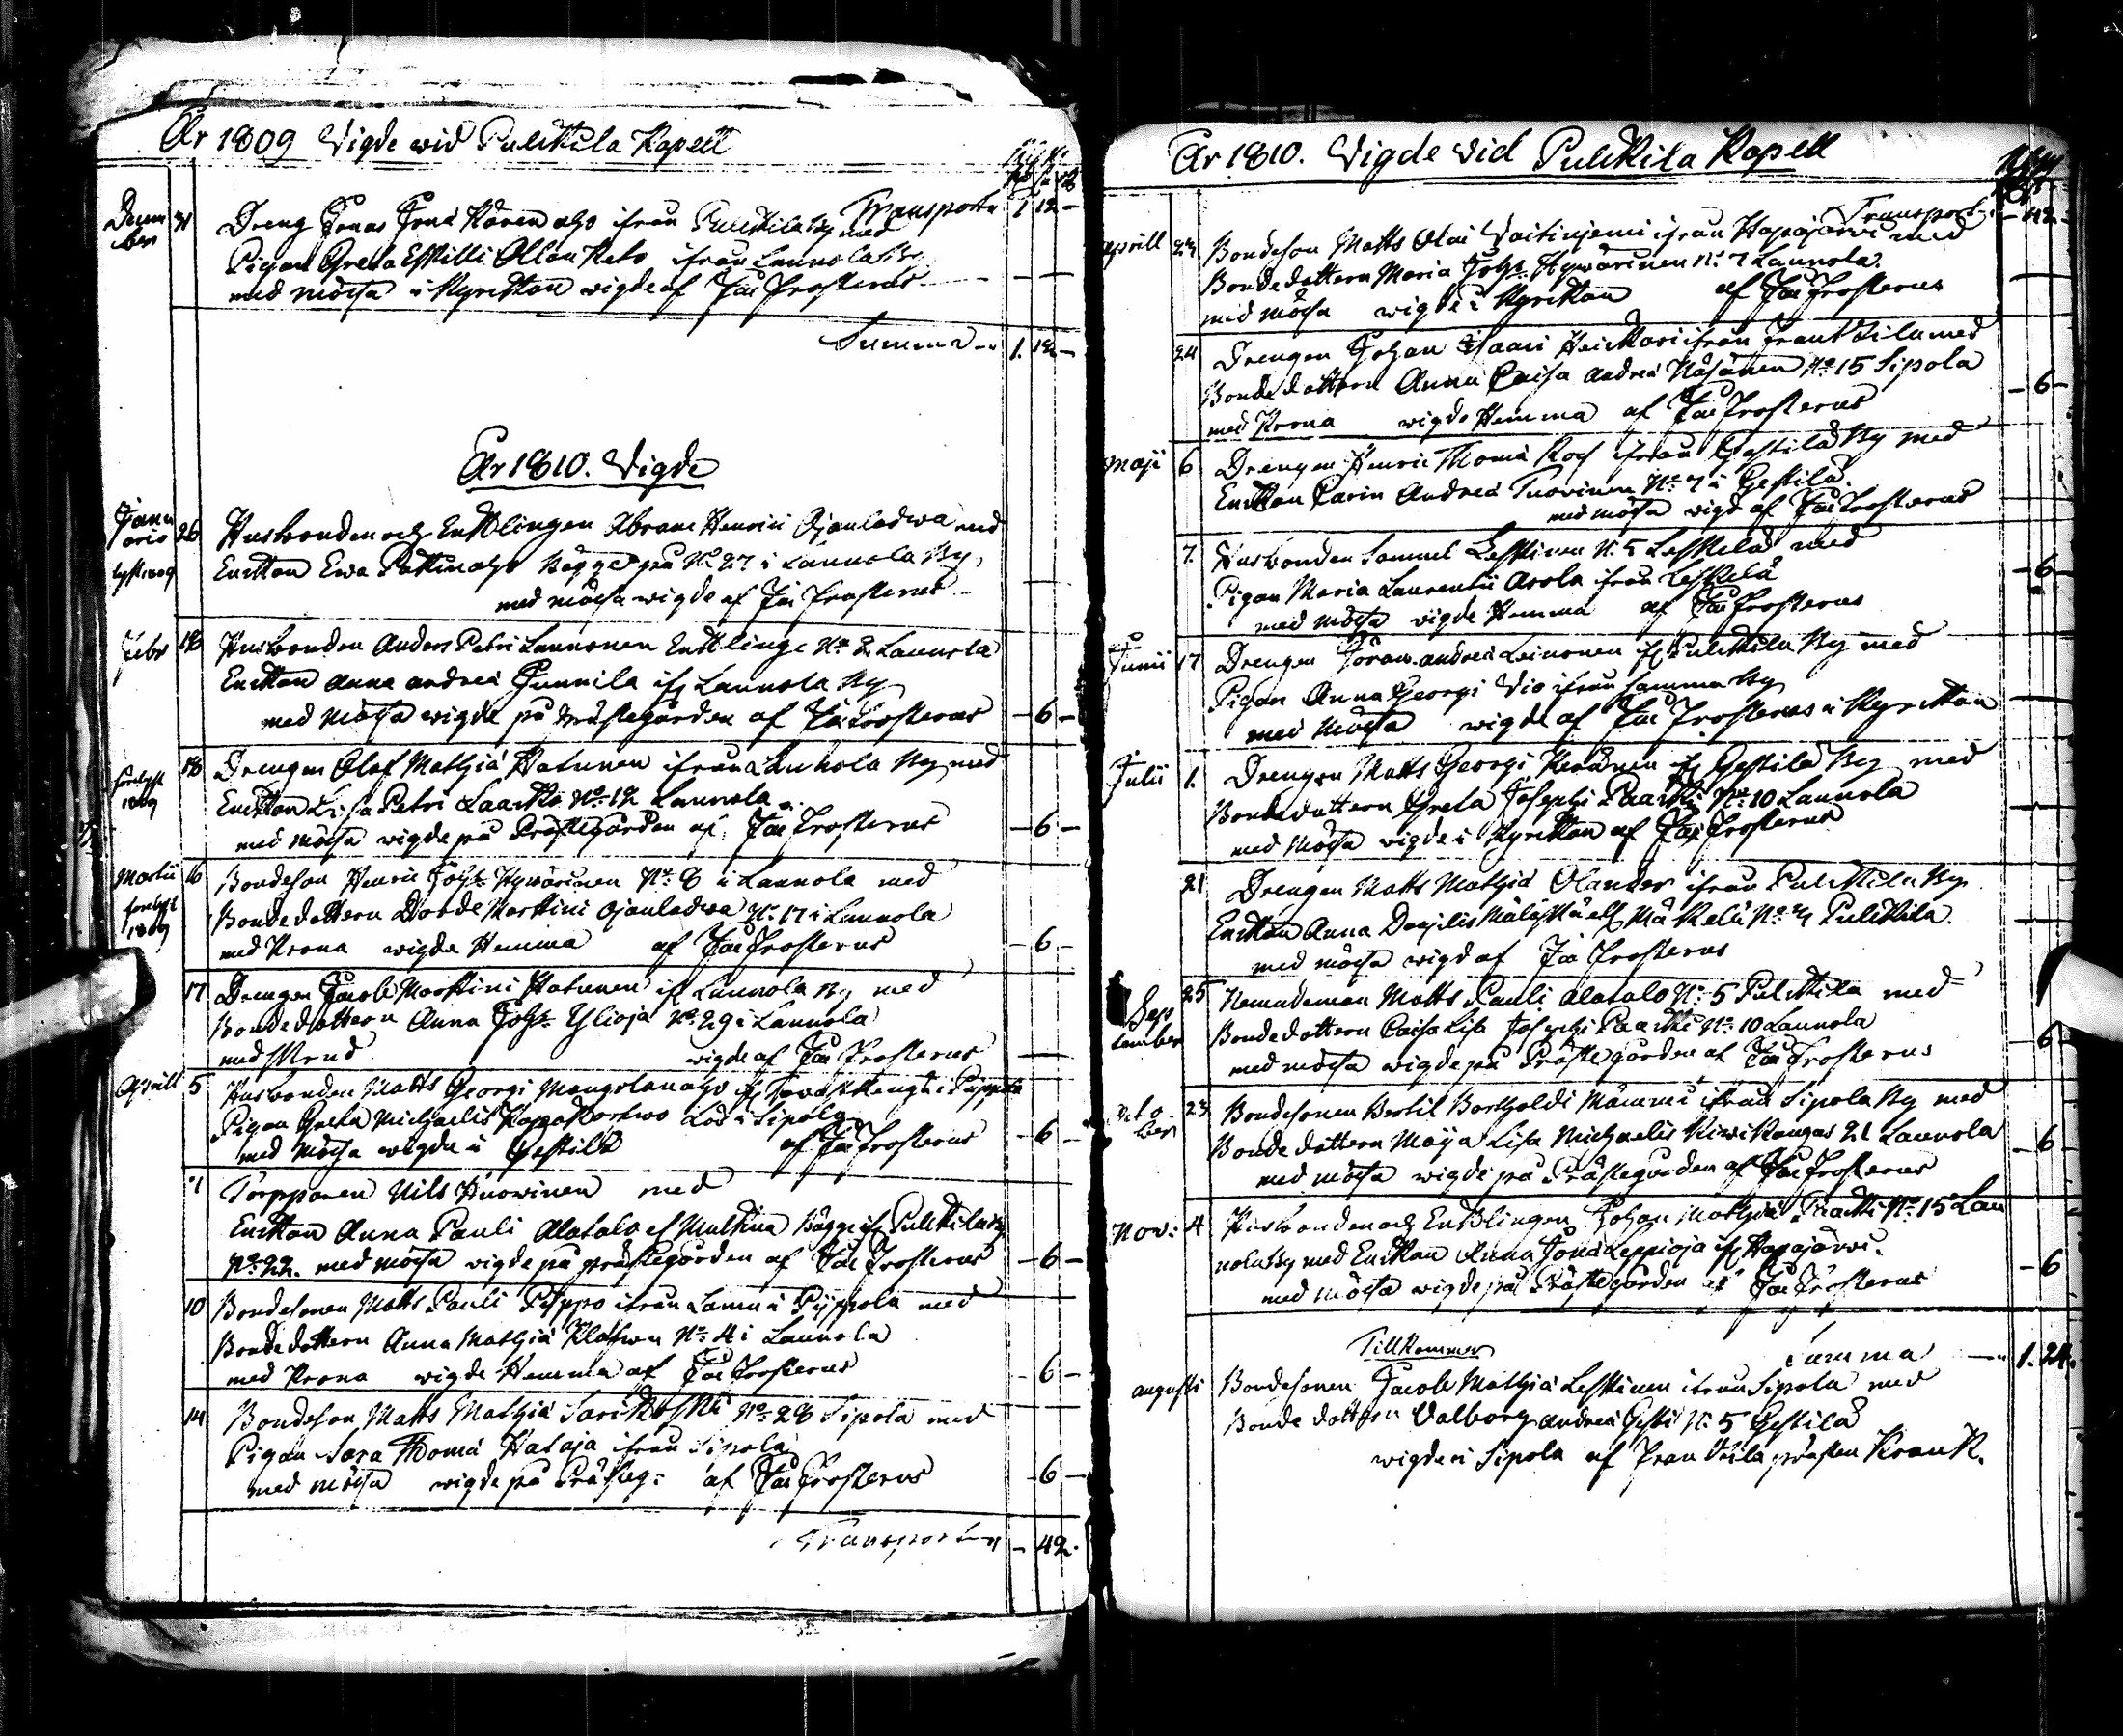 År 1809 Vigde wid Pulkkila Kapell
Transport 1 12 -
Decem
ber
31 Dreng Jonas Jonæ Karenaho ifrån Pulkkila By med
Pigan Greta Eskilli Ollonketo ifrån Launola By
med mössa i Kyrkan wigde af Jac Frosterus
Summa 1. 12 -
År 1810. Vigde
Janu
ario
26 Husbonden och Enklingen Abram Henrici Ojanladwa med
lyst 1809 Enkan Ewa Pattinaho bägge på No 27 i Launola By,
med mössa wigde af Jac Frosterus
Febr 18 Husbonden Anders Petri Launonen Enklinge No 2 Launola
Enkan Anna Andreæ Gunnila ifr Launola By
med mössa wigde på prästegården af Jac Frosterus - 6 -
18 Drengen Olof Mathiæ Hatunen ifrån Launola By med
förelyst
1809 Enkan Lisa Petri Laarko No 12 Launola
med mössa wigde på Prästegården af Jac Frosterus - 6 -
Martii 16 Bondeson Henric Joh: Hywärinen No 8 i Launola med
förelyst
1809 Bondedottern Dorde Martini Ojanladwa No 17 i Launola
med Krona wigde Hemma af Jac Frosterus - 6 -
17 Drengen Jacob Martini Hatunen ifr Launola By med
Bondedottern Anna Joh: Ylioja No 29 i Launola
wigde af Jac Frosterus
Aprill 5 Husbonden Matts Georgi Mangolanaho
Pigan Greta Michaelis i Sipola
med mössa wigde i Gestilä af Jac Frosterus - 6 -
7 Torpparen Nils Huowinen med
Enkan Anna Pauli Alatalo el Multina bägge ifr Pulkkila By
No 22. med mössa wigde på prästegården af Jac Frosterus - 6 -
10 Bondesonen Matts Pauli Piippo ifrån Lamu i Pyppola med
Bondedottern Anna Mathiæ Klafwu No 4 i Launola
med Krona wigde Hemma af Jac Frosterus - 6 -
14 Bondeson Matts Mathiæ Sarikoski No 28 Sipola med
Pigan Sara Thomæ Hataja ifrån Sipola
med mössa wigde på Prästeg: af Jac Frosterus - 6 -
Transport - 42.
År 1810. Vigde vid Pulkkila Kapell
Transport - 42 -
Aprill 23 Bondeson Matts Olai Voitinjemi ifrån Hapajärvi med
Bondedottern Maria Joh: Hywärinen No 7 Launola.
med mössa wigde i Kyrkan af Jac Frosterus
24 Drengen Johan Isaaci Heickari ifrån Frantsila med
Bondedottern Anna Caisa Andreæ Näsänen No 15 Sipola - 6 -
med Krona wigde Hemma af Jac Frosterus
Maji 6 Drengen Henric Thomæ Koch ifrån Gestilä By med
Enkan Carin Andreæ Tuovinen No 7 i Gestilä.
med mössa wigd af Jac Frosterus
7. Husbonden Samuel Leskinen No 5 Leskelä med
Pigan Maria Laurentii Asola ifrån Leskelä - 6 -
med mössa wigde Hemma af Jac Frosterus
Junii 17 Drengen Göran Andreæ Leinonen ifr Pulkkila By med
Pigan Anna Georgi Vio ifrån samma By
med Mössa wigde af Jac Frosterus i Kyrkan
Julii 1. Drengen Matts Georgi Keränen ifr Gestilä By med
Bondedottern Greta Josephi Paacki No 10 Launola
med Mössa wigde i Kyrkan af Jac Frosterus
21 Drengen Matts Mathiæ Olander ifrån Pulkkila By
Enkan Anna Mäkelä No 4 Pulkkila.
med mössa wigd af Jac Frosterus
Sep
tember
25 Nämndeman Matts Pauli Alatalo No 5 Pulkkila med
Bondedottern Caisa Lisa Josephi Paacki No 10 Launola - 6 -
med mössa wigde på Prästegården af Jac Frosterus
Octo
ber
23 Bondesonen Bertil Bertholdi Mämmi ifrån Sipola By med
Bondedottern Maija Lisa Michaelis Kiwikangas 21 Launola - 6 -
med mössa wigde på Prästegården af Jac Frosterus
Nov: 4 Husbonden och Enklingen Johan Mathiæ No 15 Lau
nola By med Enkan Anna Jonæ Leppioja ifr Hapajärwi.
med mössa wigde på Prästegården af Jac Frosterus - 6
Tillkommer
Summa 1. 24.
Augusti Bondesonen Jacob Mathiæ Leskinen ifrån Sipola med
Bondedottern Valborg Andreæ Gesti No 5 Gestilä
wigde i Sipola af Frantsila prästen Krank.